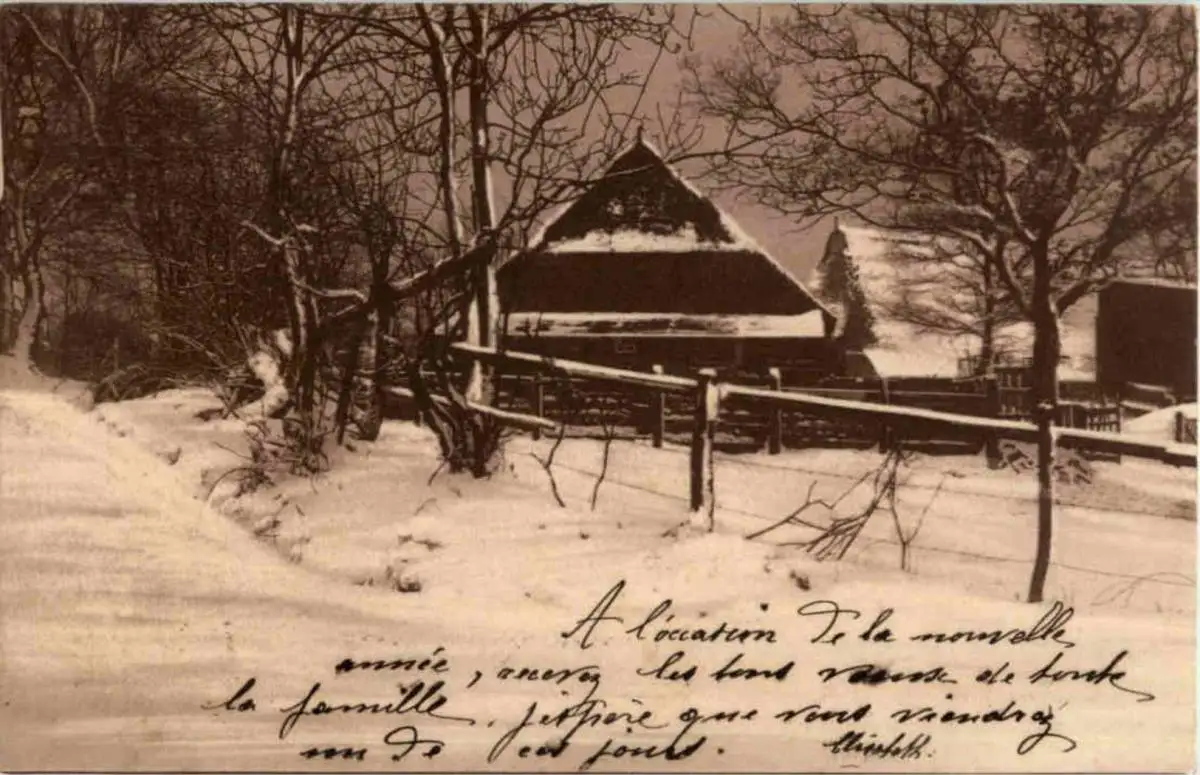 A l'occasion de la nouvelle
année, recevez les bons vœux de toute
la famille. J'espère que vous viendrez
un de ces jours. Elisabeth.